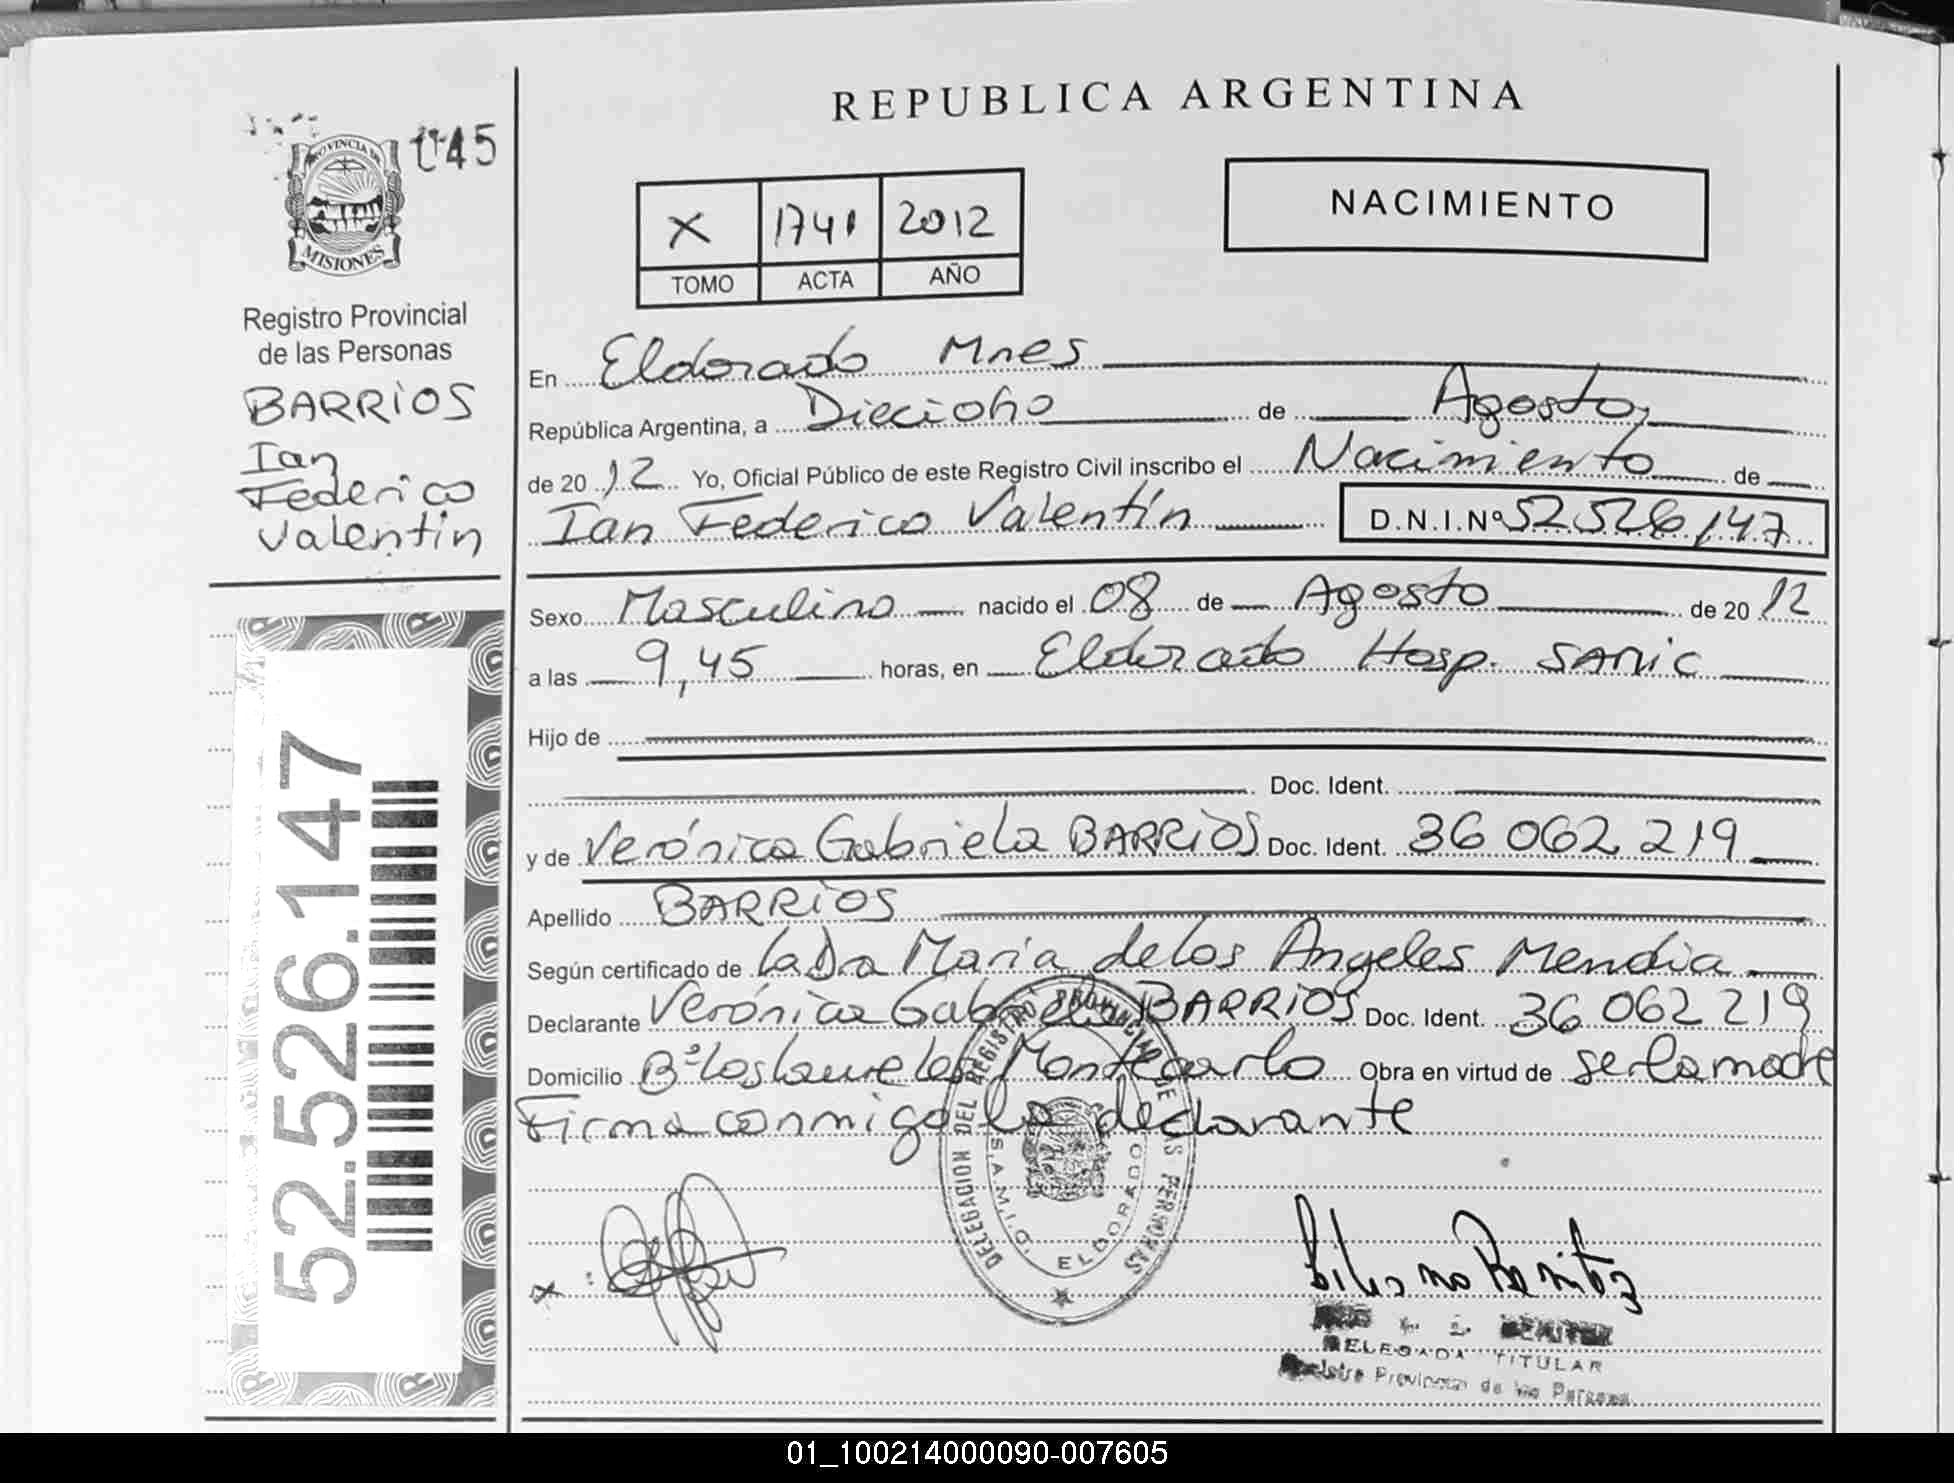 REPUBLICA ARGENTINA
045
PROVINCIA DE
MISIONES
Registro Provincial
de las Personas
BARRiOS
Ian
Federico
Valentín
52.526.147
X 1741 2012
TOMO ACTA AÑO
NACIMIENTO
En Eldorado Mnes
República Argentina, a Diecioho de Agosto,
de 2012 Yo, Oficial Público de este Registro Civil inscribo el Nacimiento de
Ian Federico Valentín D.N.I.Nº 52.526,147
Sexo Masculino nacido el 08 de Agosto de 2012
a las 9,45 horas, en Eldorado Hosp. SAMiC
Hijo de
Doc. Ident.
y de Verónica Gabriela BARRiOS Doc. Ident. 36 062 219
Apellido BARRiOS
Según certificado de la Dra María de los Angeles Mendia
Declarante Verónica Gabriela BARRiOS Doc. Ident. 36 062 219
Domicilio Bº los laureles Montecarlo Obra en virtud de ser la madre
Firma conmigo la declarante
DELEGACION DEL REGISTRO PROVINCIAL DE LAS PERSONAS
ELDORADO
X
Benitez
BENITEZ
DELEGADA TITULAR
Registro Provincial de las Personas
01_100214000090-007605